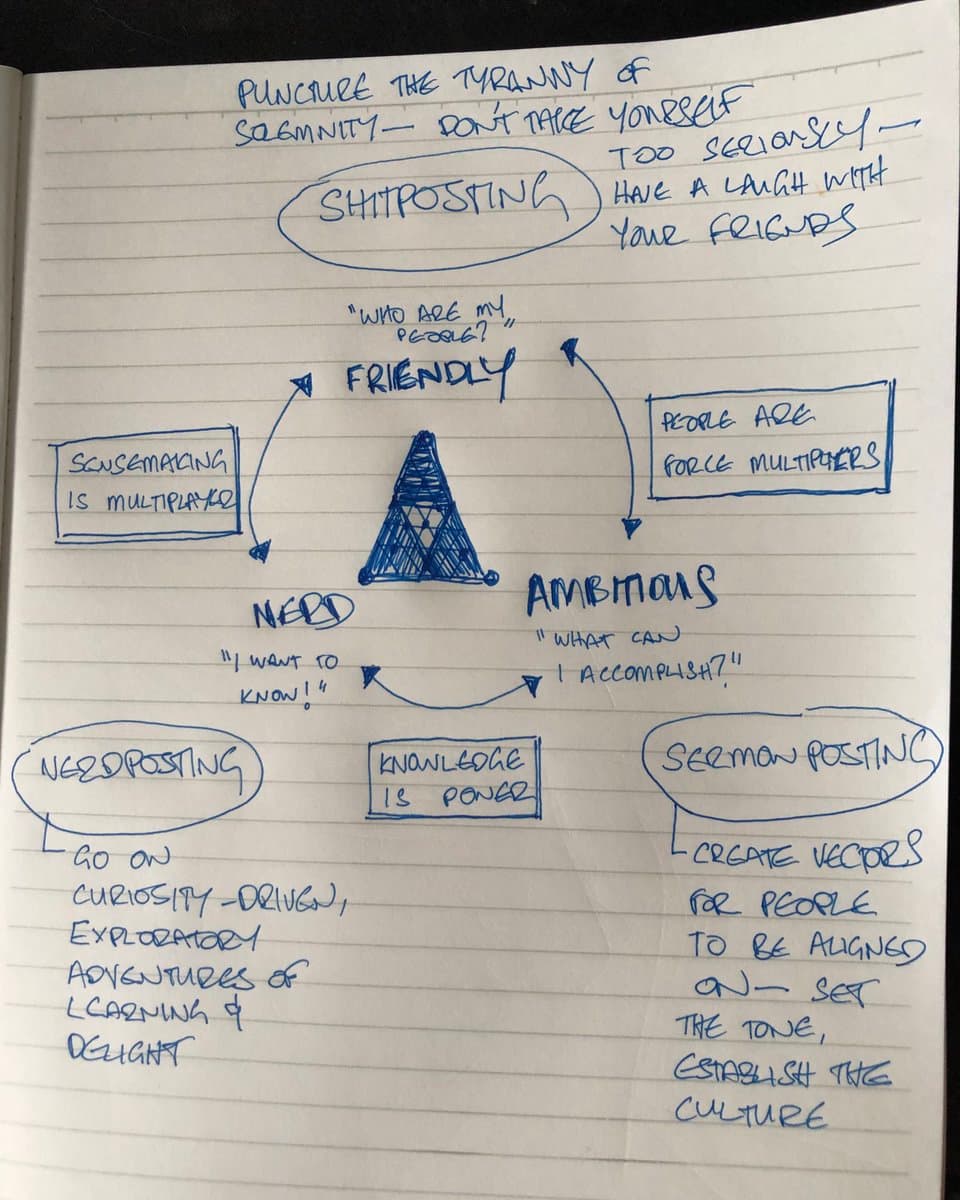 PUNCTURE THE TYRANNY OF
SOLEMNITY — DON'T TAKE YOURSELF
TOO SERIOUSLY —
HAVE A LAUGH WITH
YOUR FRIENDS
SHITPOSTING
"WHO ARE MY
PEOPLE?"
FRIENDLY
SENSEMAKING
IS MULTIPLAYER
PEOPLE ARE
FORCE MULTIPLIERS
NERD
"I WANT TO
KNOW!"
AMBITIOUS
"WHAT CAN
I ACCOMPLISH?"
KNOWLEDGE
IS POWER
NERDPOSTING
GO ON
CURIOSITY-DRIVEN,
EXPLORATORY
ADVENTURES OF
LEARNING &
DELIGHT
SERMON POSTING
CREATE VECTORS
FOR PEOPLE
TO BE ALIGNED
ON — SET
THE TONE,
ESTABLISH THE
CULTURE